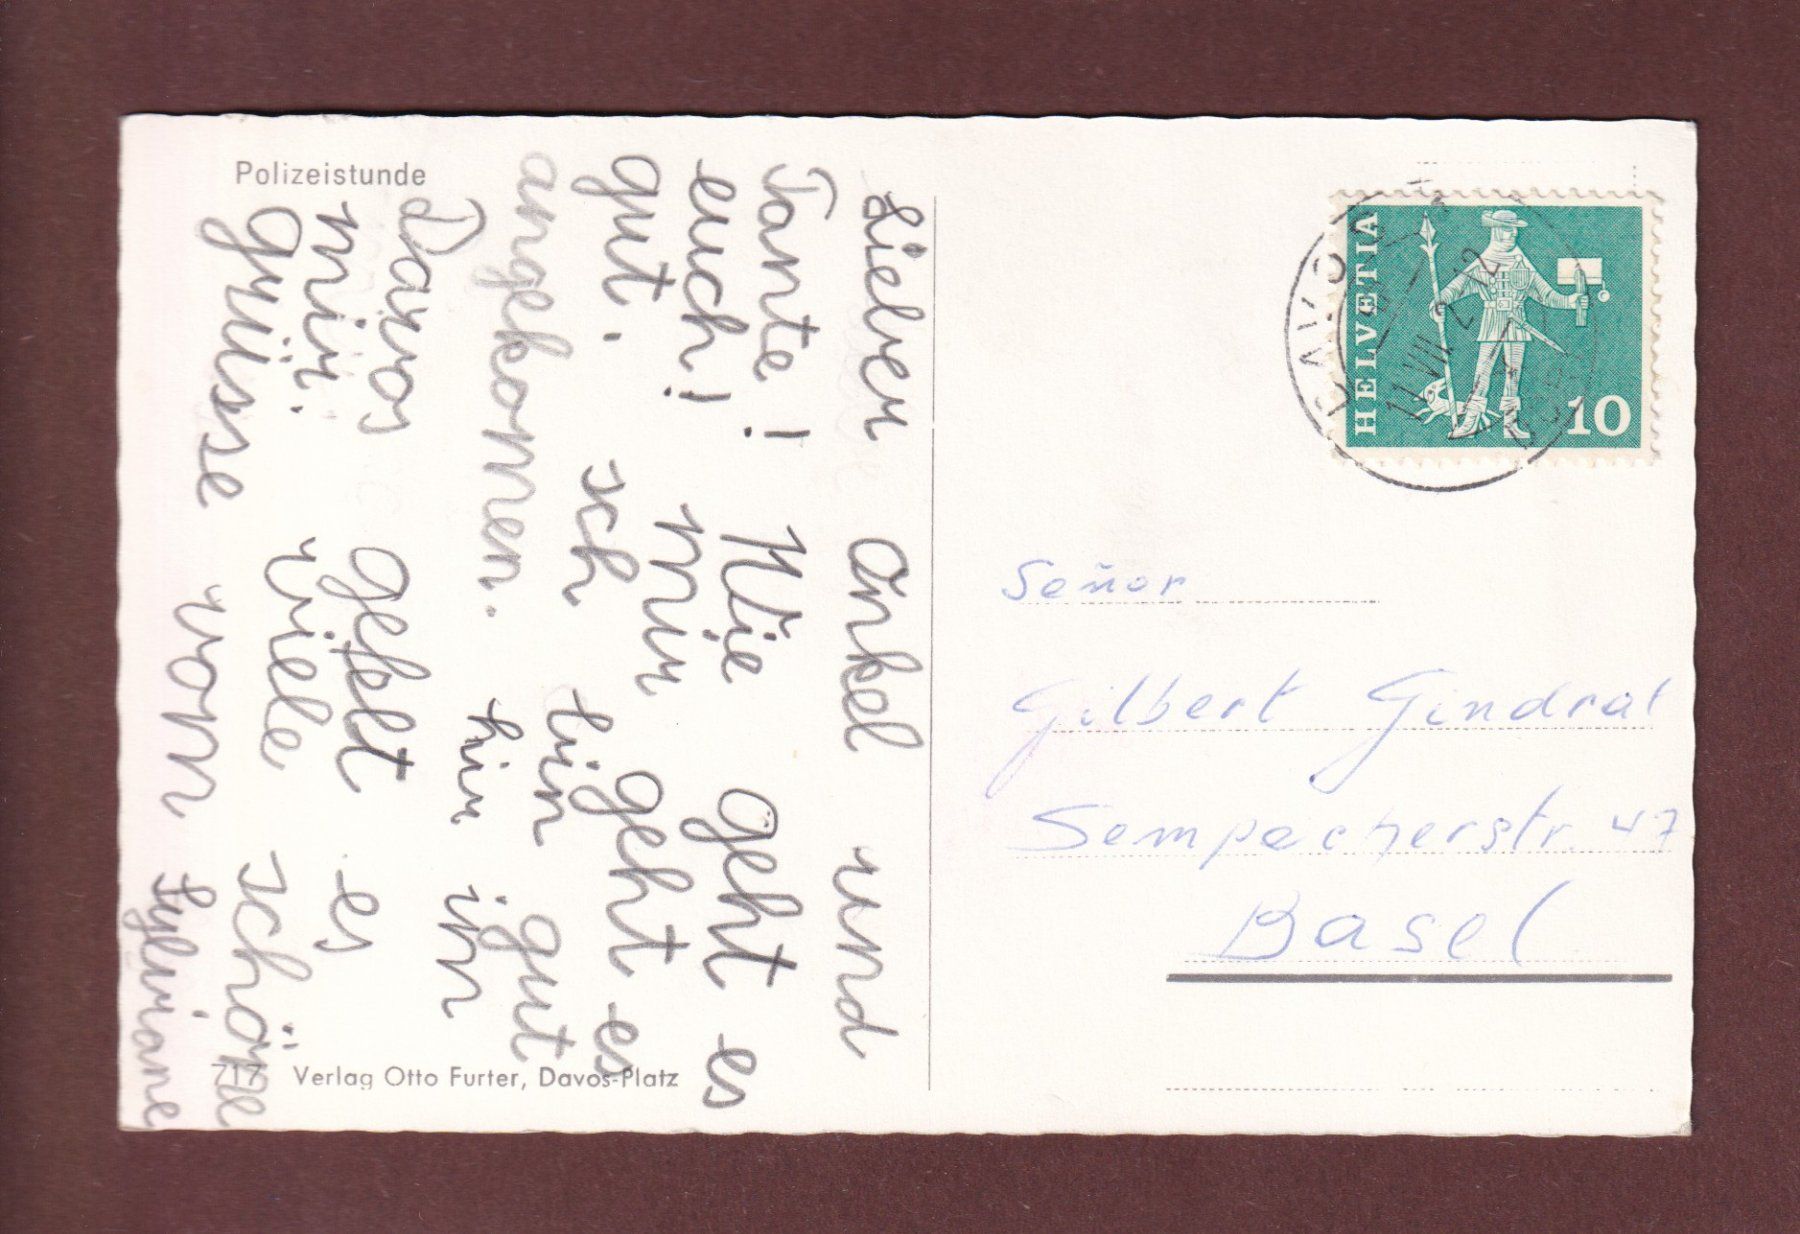 Polizeistunde
Lieber Onkel und
Tante! Wie geht es
euch! Mir geht es
gut. Ich bin gut
angekomen. hir in
Davos Gefelt es
mir. viele schöne
Grüsse von Sylviane
717 Verlag Otto Furter, Davos-Platz
HELVETIA
10
DAVOS
Señor
Gilbert Gindrat
Sempacherstr. 47
Basel